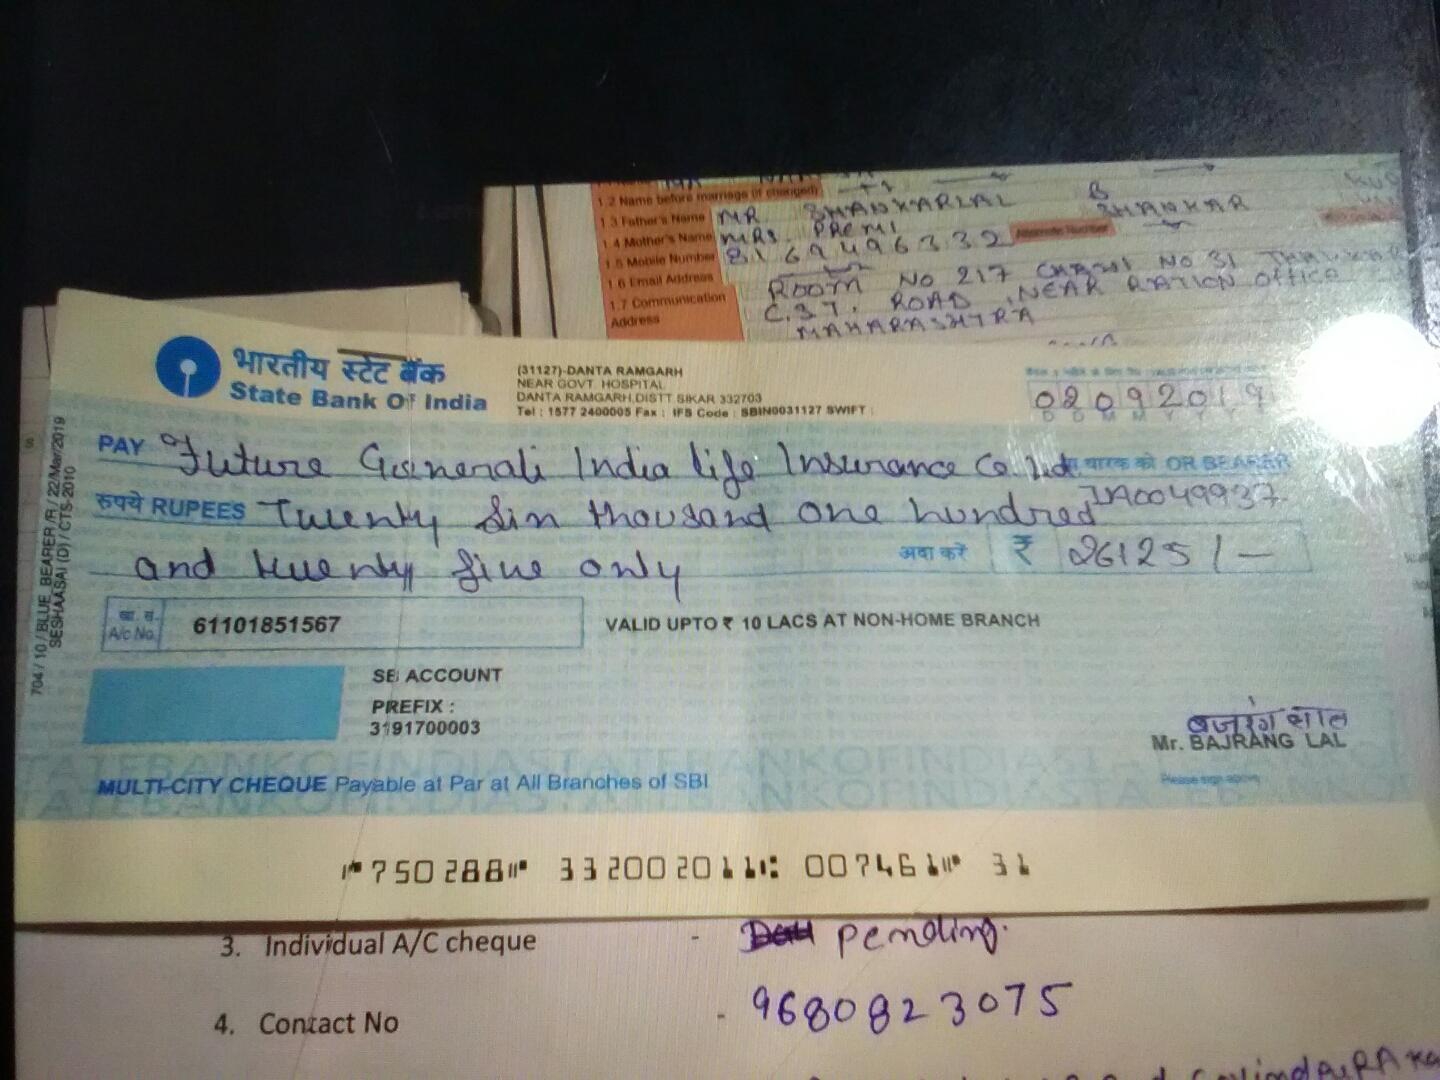 1.2 Name before marriage (if changed)
1.3 Father's Name MR SHANKARLAL B SHANKAR
1.4 Mother's Name MRS. PREMI
1.5 Mobile Number 8169496332 Alternate Number
1.6 Email Address
1.7 Communication Address
ROOM NO 217 CHAWL NO 31
C.37, ROAD, NEAR RATION OFFICE
MAHARASHTRA
भारतीय स्टेट बैंक
State Bank Of India
(31127)-DANTA RAMGARH
NEAR GOVT. HOSPITAL
DANTA RAMGARH,DISTT SIKAR 332703
Tel : 1577 2400005 Fax : IFS Code : SBIN0031127 SWIFT :
02092019
D D M M Y Y Y Y
PAY Future Generali India life Insurance Co. Ltd. या धारक को OR BEARER
IA0049937
रुपये RUPEES Twenty Sin thousand one hundred
and twenty five only अदा करें ₹ 26125/-
खा. सं. A/c No. 61101851567
VALID UPTO ₹ 10 LACS AT NON-HOME BRANCH
SB ACCOUNT
PREFIX :
3191700003
बजरंग लाल
Mr. BAJRANG LAL
Please sign above
MULTI-CITY CHEQUE Payable at Par at All Branches of SBI
704 / 10 / BLUE_BEARER /R / 22/Mar/2019
SESHAASAI (D) / CTS-2010
750288 332002011 007461 31
3. Individual A/C cheque - pending.
4. Contact No - 9680823075